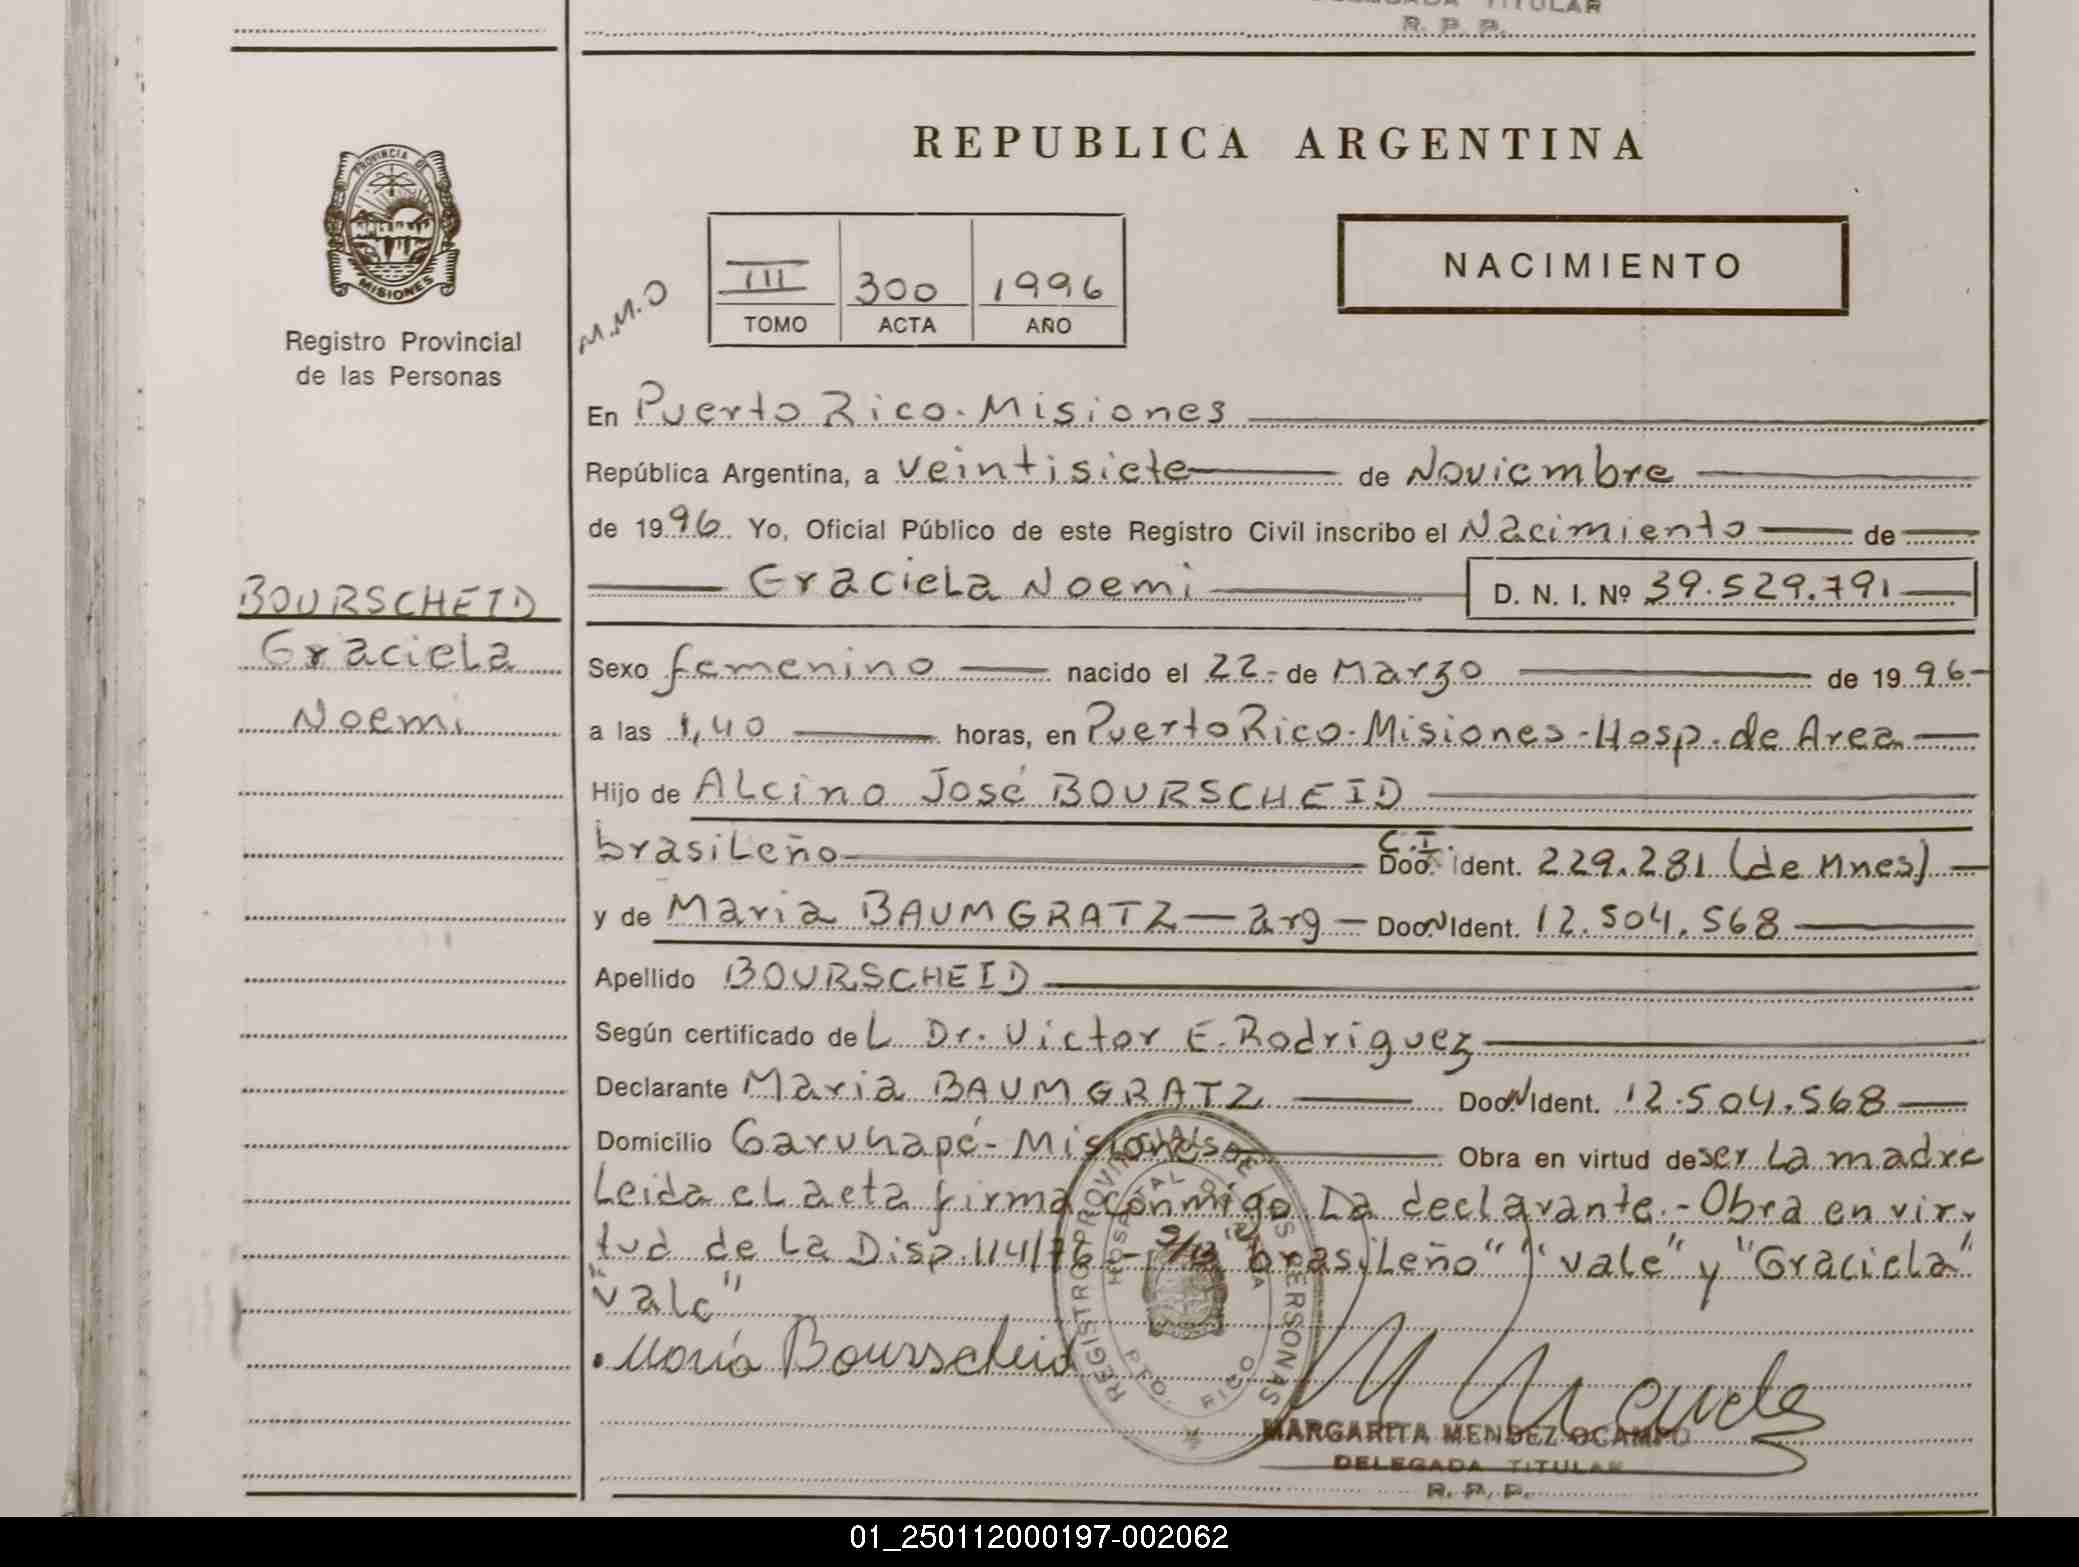 DELEGADA TITULAR
R. P. P.
PROVINCIA DE
MISIONES
Registro Provincial
de las Personas
BOURSCHEID
Graciela
Noemi
REPUBLICA ARGENTINA
M.M.O
III 300 1996
TOMO ACTA AÑO
NACIMIENTO
En Puerto Rico. Misiones
República Argentina, a veintisiete de Noviembre
de 1996. Yo, Oficial Público de este Registro Civil inscribo el Nacimiento de
Graciela Noemi D. N. I. Nº 39.529.791
Sexo femenino nacido el 22 - de Marzo de 1996 -
a las 1,40 horas, en Puerto Rico - Misiones - Hosp. de Area
Hijo de Alcino José BOURSCHEID
C.I.
brasileño Doc. Ident. 229.281 (de Mnes)
y de Maria BAUMGRATZ - arg - Doc. N Ident. 12.504.568
Apellido BOURSCHEID
Según certificado del Dr. Victor E. Rodriguez
Declarante Maria BAUMGRATZ Doc. N Ident. 12.504.568
Domicilio Garuhapé - Misiones Obra en virtud de ser la madre
Leida el acta firma conmigo la declarante. - Obra en vir-
tud de la Disp. 114/76 - S/R "brasileño" "vale" y "Graciela"
"vale"
María Bourscheid
REGISTRO PROVINCIAL DE LAS PERSONAS
HOSPITAL DE AREA
PTO. RICO
MARGARITA MENDEZ OCAMPO
DELEGADA TITULAR
R. P. P.
01_250112000197-002062